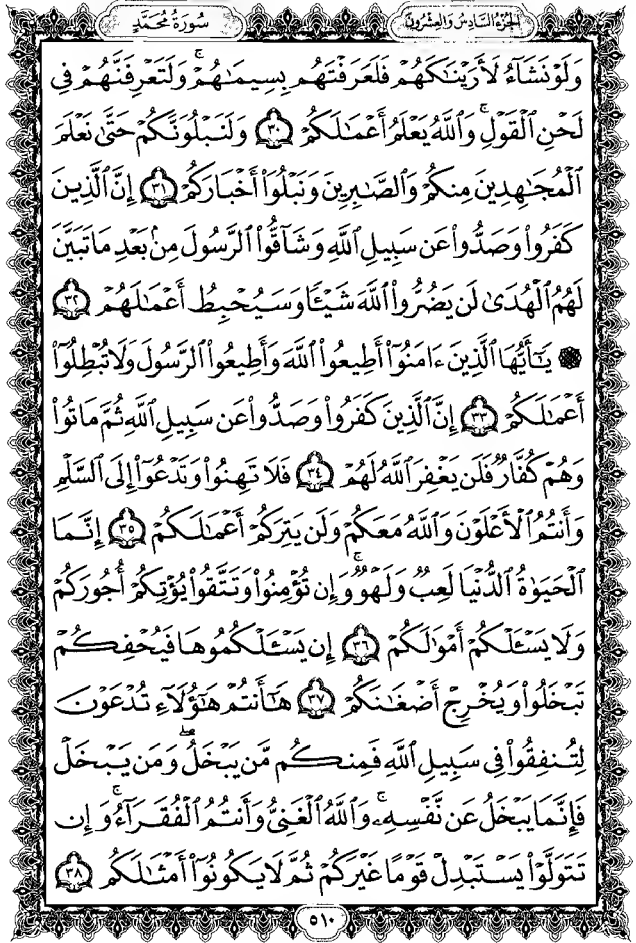 سُورَةُ مُحَمَّدٍ
الجُزْءُ السَّادِسُ وَالعِشْرُونَ
وَلَوْ نَشَآءُ لَأَرَيْنَٰكَهُمْ فَلَعَرَفْتَهُم بِسِيمَٰهُمْ ۚ وَلَتَعْرِفَنَّهُمْ فِى
لَحْنِ ٱلْقَوْلِ ۚ وَٱللَّهُ يَعْلَمُ أَعْمَٰلَكُمْ ٣٠ وَلَنَبْلُوَنَّكُمْ حَتَّىٰ نَعْلَمَ
ٱلْمُجَٰهِدِينَ مِنكُمْ وَٱلصَّٰبِرِينَ وَنَبْلُوَا۟ أَخْبَارَكُمْ ٣١ إِنَّ ٱلَّذِينَ
كَفَرُوا۟ وَصَدُّوا۟ عَن سَبِيلِ ٱللَّهِ وَشَآقُّوا۟ ٱلرَّسُولَ مِنۢ بَعْدِ مَا تَبَيَّنَ
لَهُمُ ٱلْهُدَىٰ لَن يَضُرُّوا۟ ٱللَّهَ شَيْـًٔا وَسَيُحْبِطُ أَعْمَٰلَهُمْ ٣٢
۞ يَٰٓأَيُّهَا ٱلَّذِينَ ءَامَنُوٓا۟ أَطِيعُوا۟ ٱللَّهَ وَأَطِيعُوا۟ ٱلرَّسُولَ وَلَا تُبْطِلُوٓا۟
أَعْمَٰلَكُمْ ٣٣ إِنَّ ٱلَّذِينَ كَفَرُوا۟ وَصَدُّوا۟ عَن سَبِيلِ ٱللَّهِ ثُمَّ مَاتُوا۟
وَهُمْ كُفَّارٌ فَلَن يَغْفِرَ ٱللَّهُ لَهُمْ ٣٤ فَلَا تَهِنُوا۟ وَتَدْعُوٓا۟ إِلَى ٱلسَّلْمِ
وَأَنتُمُ ٱلْأَعْلَوْنَ وَٱللَّهُ مَعَكُمْ وَلَن يَتِرَكُمْ أَعْمَٰلَكُمْ ٣٥ إِنَّمَا
ٱلْحَيَوٰةُ ٱلدُّنْيَا لَعِبٌ وَلَهْوٌ ۚ وَإِن تُؤْمِنُوا۟ وَتَتَّقُوا۟ يُؤْتِكُمْ أُجُورَكُمْ
وَلَا يَسْـَٔلْكُمْ أَمْوَٰلَكُمْ ٣٦ إِن يَسْـَٔلْكُمُوهَا فَيُحْفِكُمْ
تَبْخَلُوا۟ وَيُخْرِجْ أَضْغَٰنَكُمْ ٣٧ هَٰٓأَنتُمْ هَٰٓؤُلَآءِ تُدْعَوْنَ
لِتُنفِقُوا۟ فِى سَبِيلِ ٱللَّهِ فَمِنكُم مَّن يَبْخَلُ ۖ وَمَن يَبْخَلْ
فَإِنَّمَا يَبْخَلُ عَن نَّفْسِهِۦ ۚ وَٱللَّهُ ٱلْغَنِىُّ وَأَنتُمُ ٱلْفُقَرَآءُ ۚ وَإِن
تَتَوَلَّوْا۟ يَسْتَبْدِلْ قَوْمًا غَيْرَكُمْ ثُمَّ لَا يَكُونُوٓا۟ أَمْثَٰلَكُم ٣٨
٥١٠